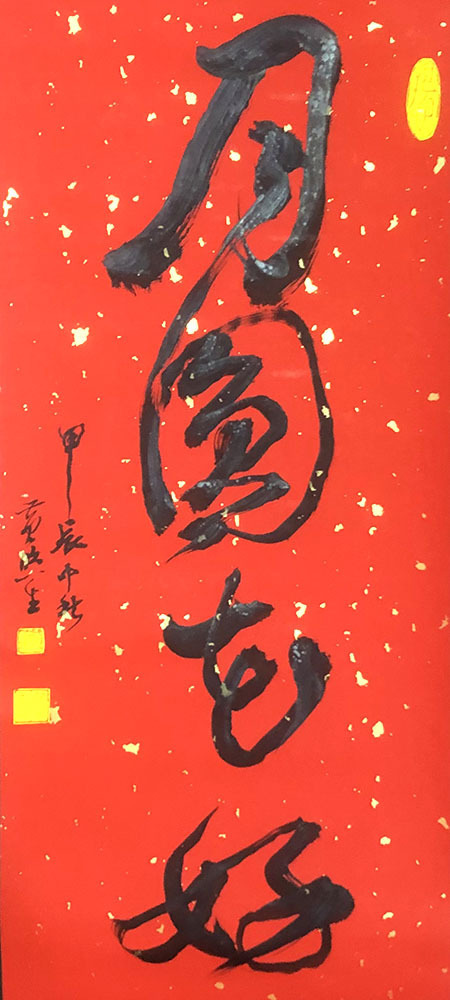 月圆花好
甲辰中秋